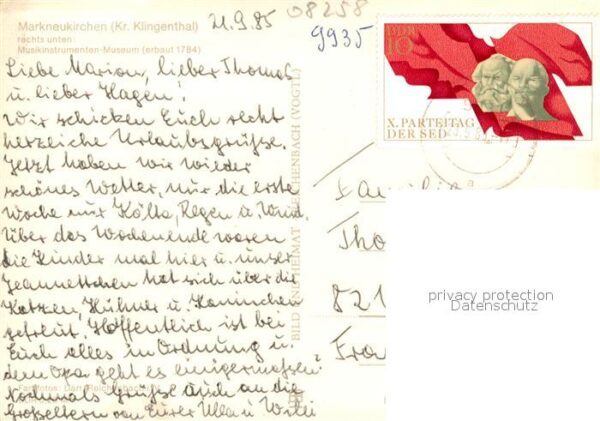 Markneukirchen (Kr. Klingenthal)
rechts unten:
Musikinstrumenten-Museum (erbaut 1784)
21.9.85
08258
9935
Liebe Marion, lieber Thomas
u. lieber Hagen!
Wir schicken Euch recht
herzliche Urlaubsgrüße.
Jetzt haben wir wieder
schönes Wetter, nur die erste
Woche nur Kälte, Regen u. Wind.
Über das Wochenende waren
die Kinder mal hier u. unser
Jeannettchen hat sich über die
Katzen, Hühner u. Kaninchen
gefreut. Hoffentlich ist bei
Euch alles in Ordnung u.
dem Opa geht es einigermaßen?
Nochmals Grüße auch an die
Großeltern von Eurer Ulla u.
BILD UND HEIMAT REICHENBACH (VOGTL)
DDR
10
X. PARTEITAG
DER SED
Familie
Tho
821
Fra
privacy protection
Datenschutz